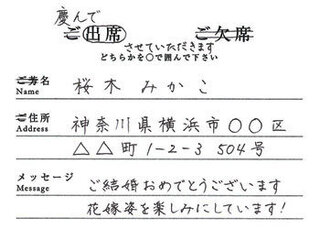 慶んで
ご出席 ご欠席
させていただきます
どちらかを○で囲んで下さい
ご芳名 桜木 みかこ
Name
ご住所 神奈川県横浜市○○区
Address △△町1-2-3 504号
メッセージ ご結婚おめでとうございます
Message 花嫁姿を楽しみにしています!